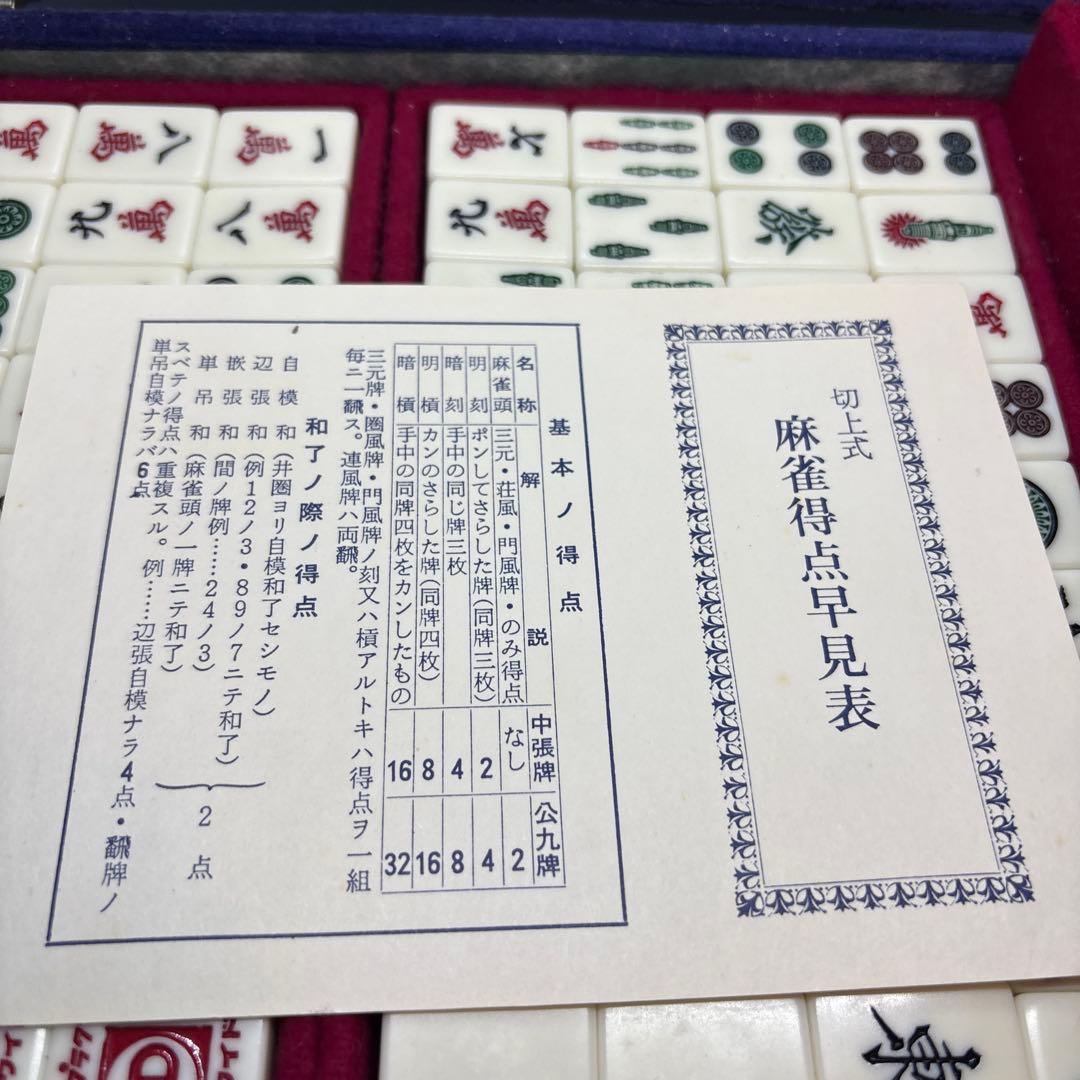 切上式
麻雀得点早見表
基本ノ得点
名称 解説 中張牌 公九牌
麻雀頭 三元・荘風・門風牌・のみ得点 なし 2
明刻 ポンしてさらした牌(同牌三枚) 2 4
暗刻 手中の同じ牌三枚 4 8
明槓 カンのさらした牌(同牌四枚) 8 16
暗槓 手中の同牌四枚をカンしたもの 16 32
三元牌・圏風牌・門風牌ノ刻又ハ槓アルトキハ得点ヲ一組
毎ニ一飜ス。連風牌ハ両飜。
和了ノ際ノ得点
自模和(井圏ヨリ自模和了セシモノ)
辺張和(例12ノ3・89ノ7ニテ和了)
嵌張和(間ノ牌例……24ノ3)
単吊和(麻雀頭ノ一牌ニテ和了)
2点
スベテノ得点ハ重複スル。例……辺張自模ナラ4点・飜牌ノ
単吊自模ナラバ6点
萬
八萬
一萬
六萬
九萬
八萬
九萬
發
萬
東